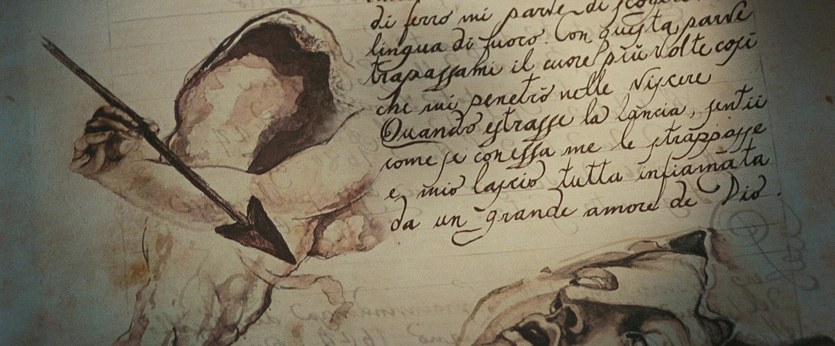 di ferro mi parve di
lingua di fuoco Con questa parve
trapassami il cuore più volte così
che mi penetrò nelle viscere
Quando estrasse la lancia, sentii
come se con essa me le strappasse
e mio lascio tutta infiamata
da un grande amore de Dio.